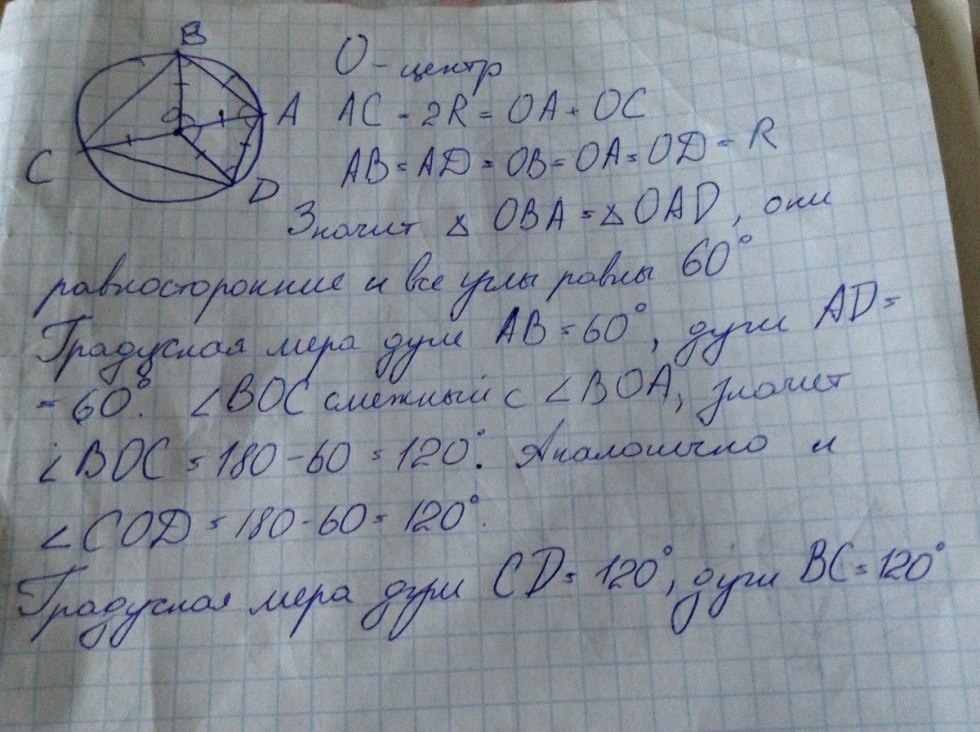 B
A
O
C
D
O - центр
AC = 2R = OA + OC
AB = AD = OB = OA = OD = R
Значит △ OBA = △ OAD, они
равносторонние и все углы равны 60°
Градусная мера дуги AB = 60°, дуги AD =
= 60°. ∠BOC смежный с ∠BOA, значит
∠BOC = 180 - 60 = 120°. Аналогично и
∠COD = 180 - 60 = 120°.
Градусная мера дуги CD = 120°, дуги BC = 120°